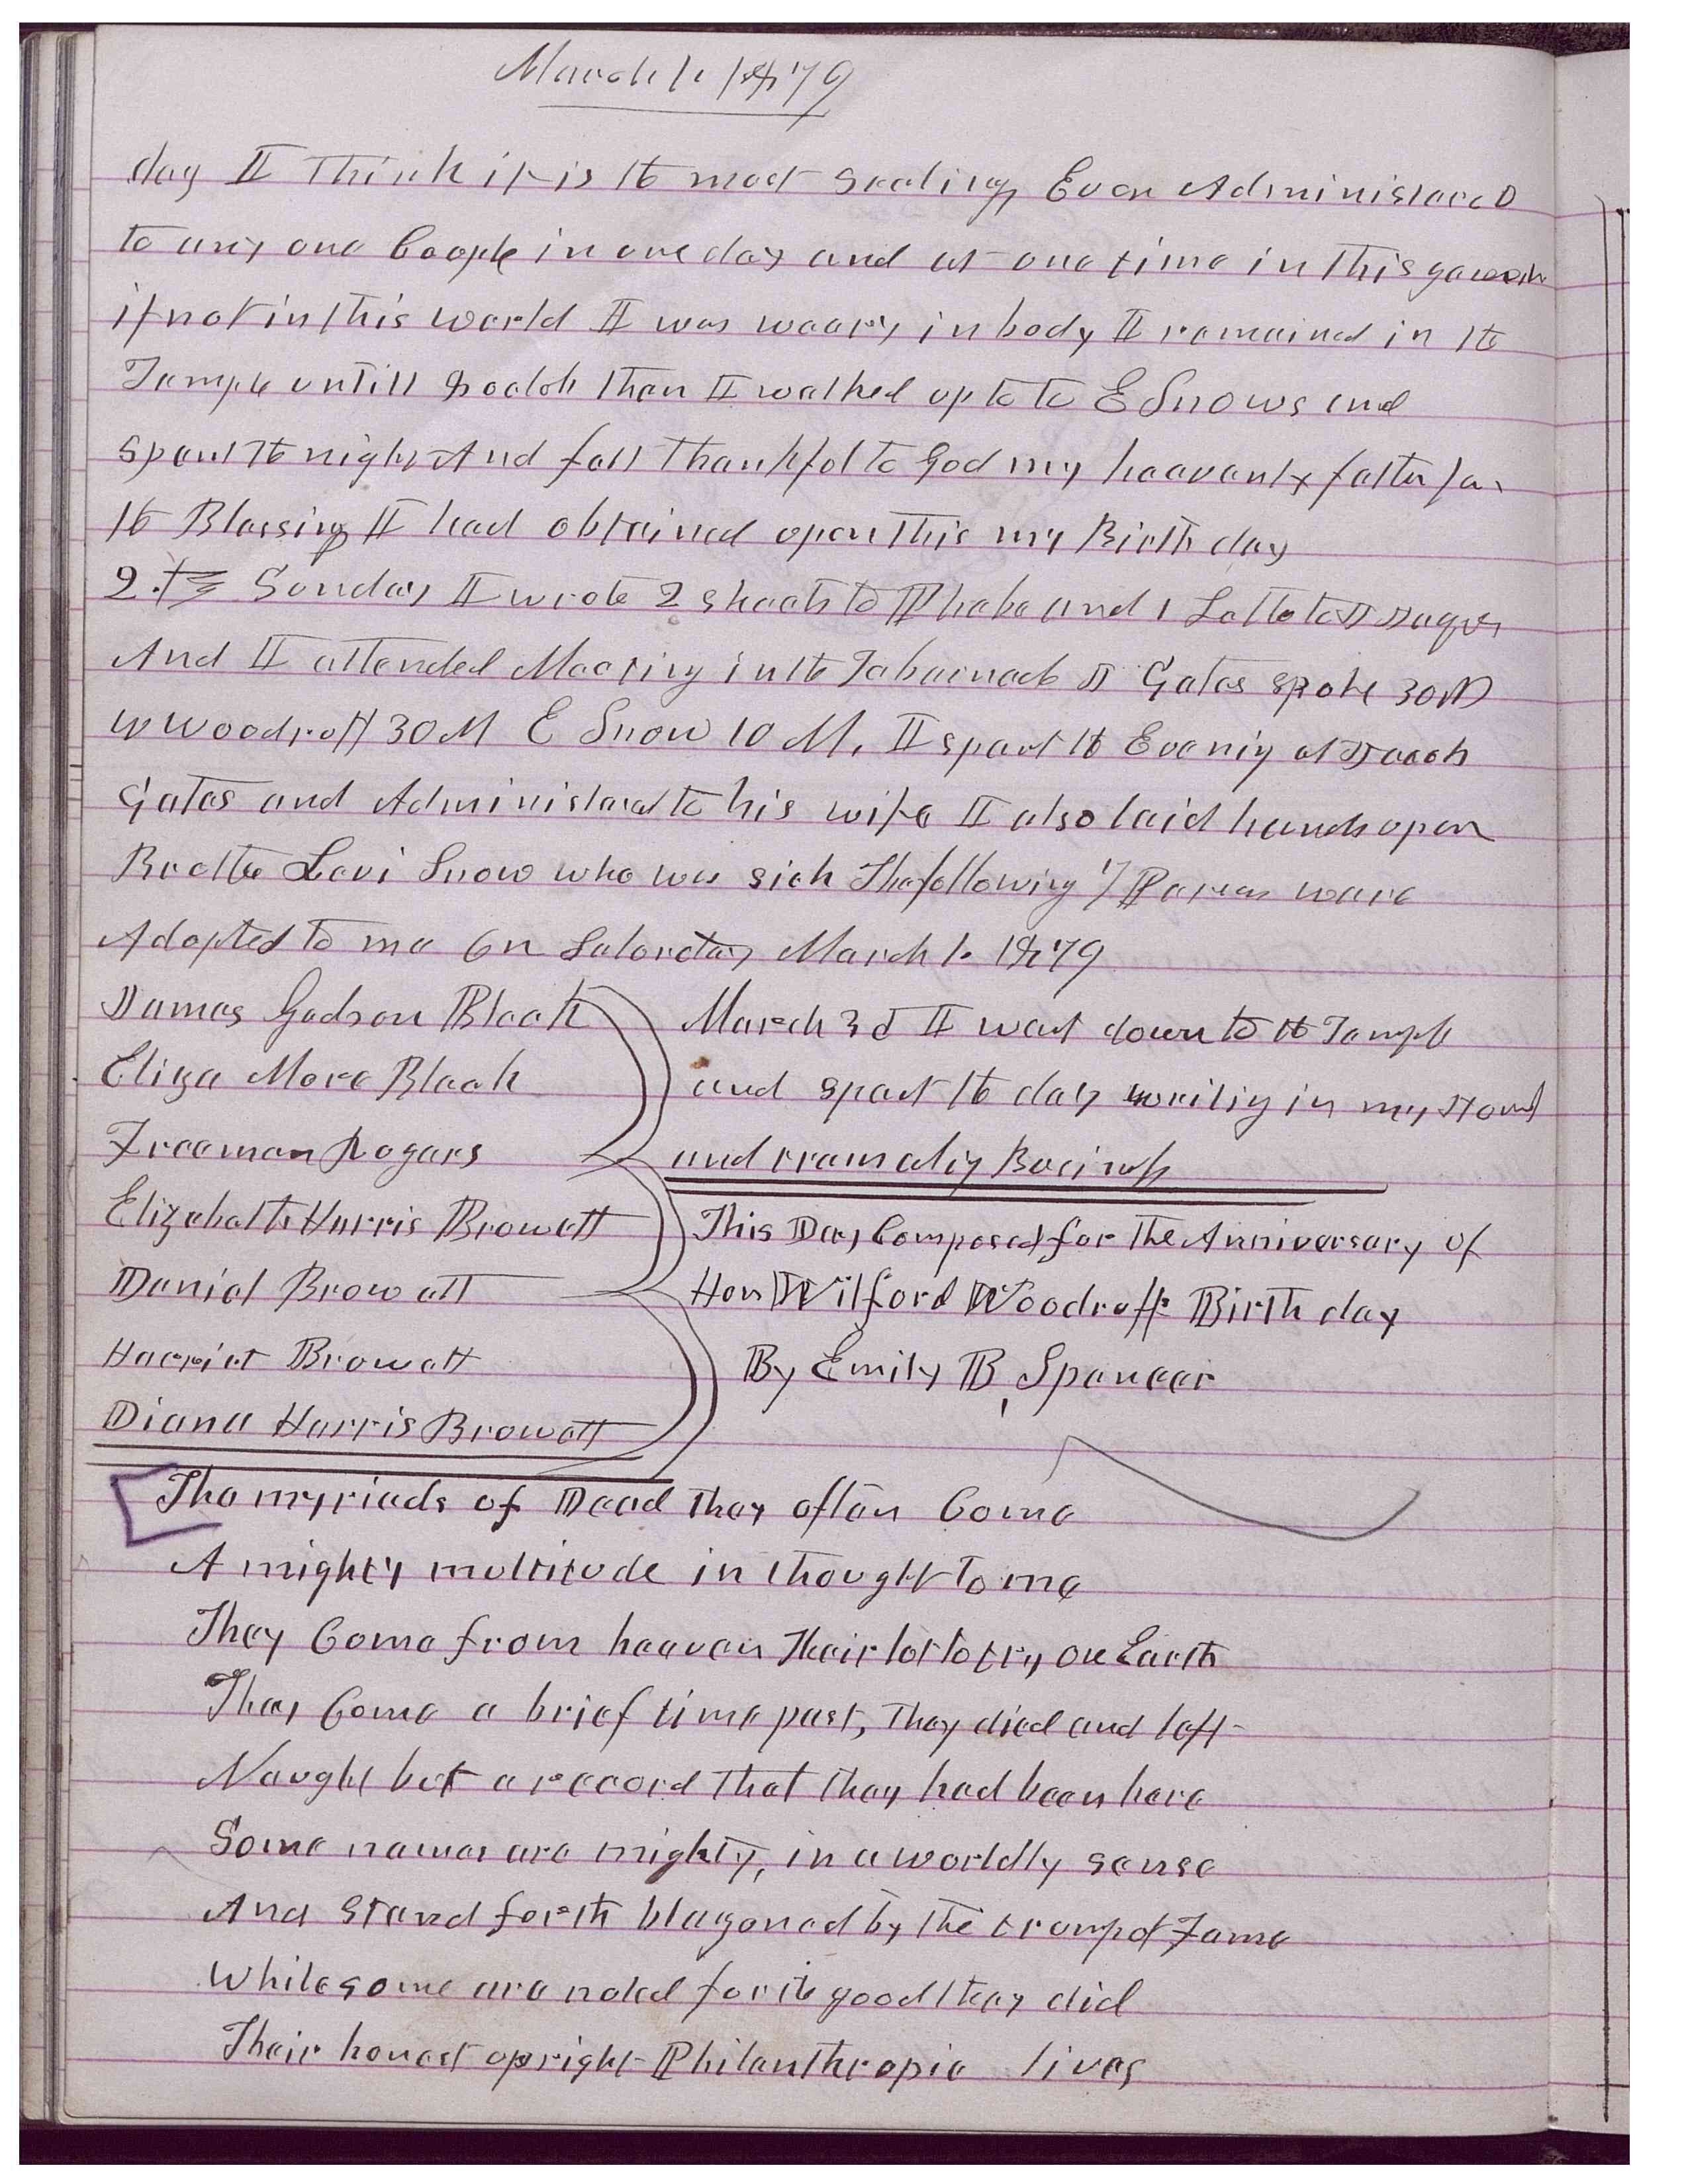 March 1, 1879
day I Think it is the most sealing Ever Administered
to any one Couple in one day and at one time in this
if not in this world I was weary in body I remained in the
Temple untill 8 oclok then I walked up to to E Snows and
spent the night And felt Thankful to God my heavenly father for
the Blessing I had obtained upon This my Birth day
2. Sunday I wrote 2 sheets to Phebe and 1 Letter to
And I attended Meeting in the Tabernacle J Gates spoke 30 M
W Woodruff 30 M E Snow 10 M. I spent the Evening at Jacob
Gates and Administered to his wife I also laid hands upon
Brother Levi Snow who was sick The following 7 Persons ware
Adopted to me on Saturday March 1. 1879
James Godson Bleak
Eliza More Bleak
Freeman Rogers
Elizabeth Harris Browett
Daniel Browett
Harriet Browett
Diana Harris Browett
March 3d I went down to the Temple
and spent the day writing in my
and Buisness
This Day Composed for The Anniversary of
Hon Wilford Woodruff Birth day
By Emily B, Spencer
The myriads of Dead They often Come
A mighty multitude in thought To me
They Come from heaven Their lot to try on Earth
They Come a brief time past, They died and left
Naught but a record That they had been here
Some names are mighty, in a worldly sense
And stand forth blazoned by the trump of Fame
While some are noted for the good they did
Their honest upright Philanthropic lives